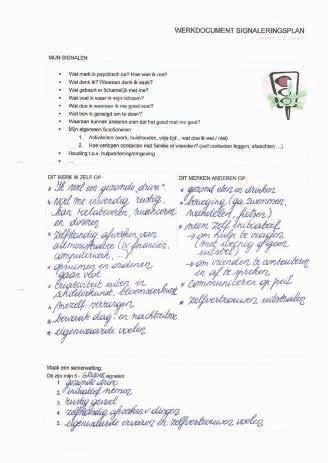 WERKDOCUMENT SIGNALERINGSPLAN
MIJN SIGNALEN
• Wat merk ik psychisch op? Hoe voel ik me?
• Wat denk ik? Waaraan denk ik vaak?
• Wat gebeurt er lichamelijk met me?
• Wat voel ik waar in mijn lichaam?
• Wat doe ik wanneer ik me goed voel?
• Wat ben ik geneigd om te doen?
• Waaraan kunnen anderen zien dat het goed met me gaat?
• Mijn algemeen functioneren
1. Activiteiten (werk, huishouden, vrije tijd .. wat doe ik wel / niet)
2. Hoe verlopen contacten met familie of vrienden? (zelf contacten leggen, afwachten ...)
• Houding t.o.v. hulpverlening/omgeving
• ...
DIT MERK IK ZELF OP
* Ik voel een gezonde drive
* voel me inwendig rustig.
kan relativeren,
en doseren
* zelfstandig afwerken van
administratie (bv financiën,
computerwerk, ...)
* opruimen en ordenen
gaan vlot
* creativiteit uiten in
schilderkunst, bloemsierkunst
* mezelf verzorgen
* bewaak dag- en nachtritme
* eigenwaarde voelen
DIT MERKEN ANDEREN OP
* gezond eten en drinken
* beweging (ga zwemmen,
wandelen, fietsen)
* neem zelf initiatief
→ om hulp te vragen
(met weinig of geen
uitstel)
→ om vrienden te contacteren
en af te spreken
* communiceren op peil
* zelfvertrouwen uitstralen
Maak een samenvatting:
Dit zijn mijn 5 - GROENE signalen
1. gezonde drive
2. initiatief nemen
3. rustig gevoel
4. zelfstandig afwerken v dingen
5. eigenwaarde ervaren en zelfvertrouwen voelen